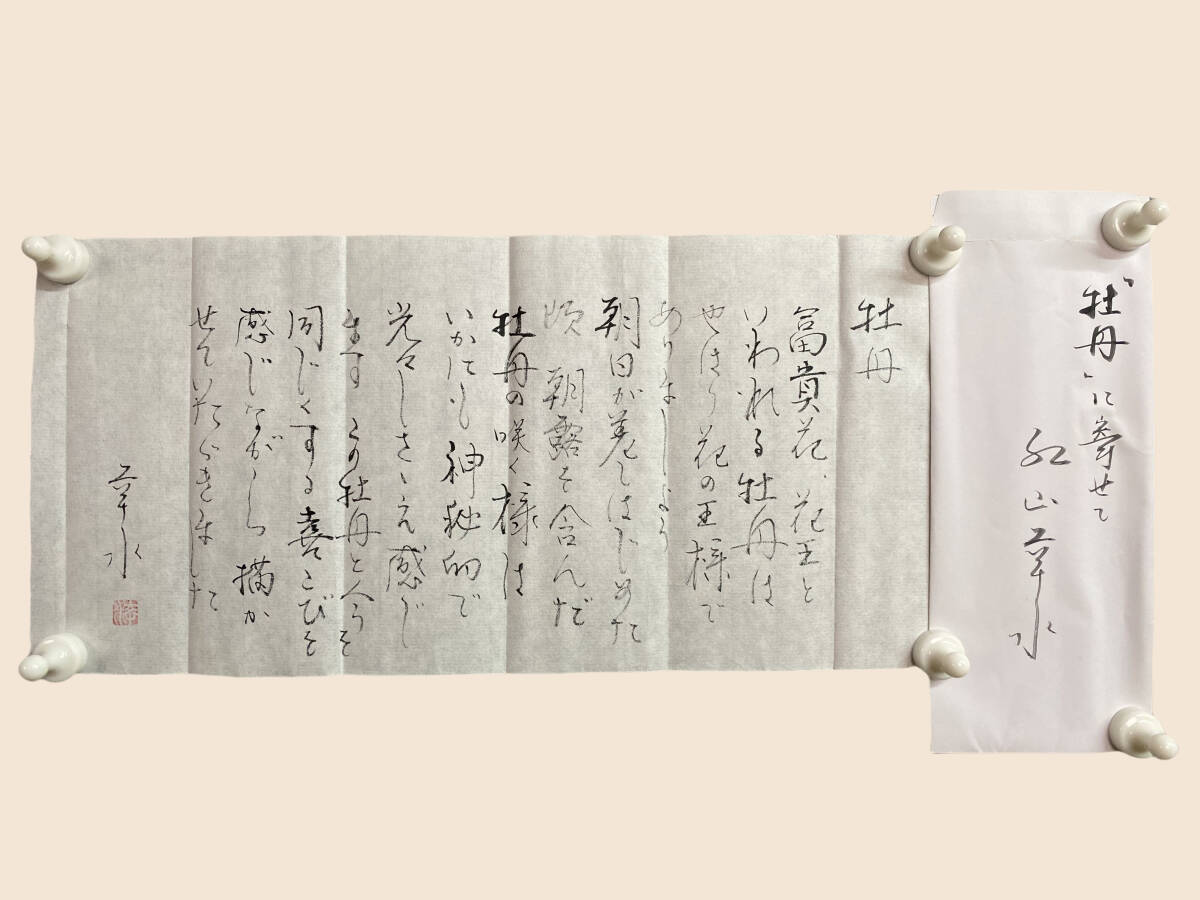 「牡丹」に寄せて
山 水
牡丹
富貴花、花王と
いわれる牡丹は
やはり花の王様で
ありましょう
朝日が差しはじめた
頃 朝露を含んだ
牡丹の咲く様は
いかにも神秘的で
光々しささえ感じ
ます この牡丹と今を
同じくする喜こびを
感じながら 描か
せていただきました
水